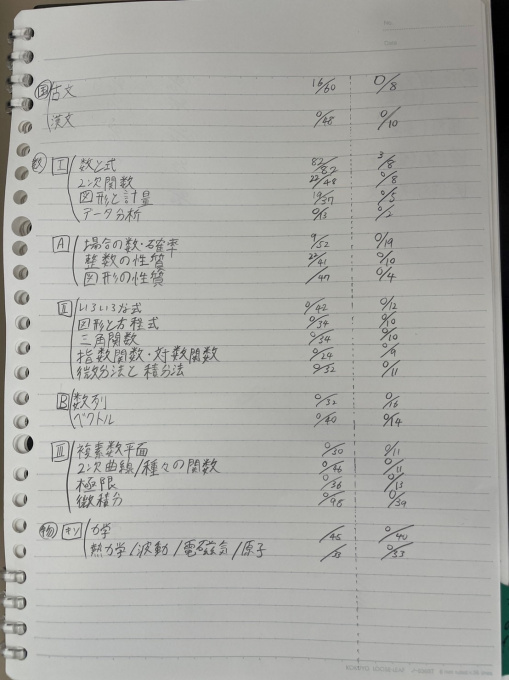 No.
Date
国 古文 16/60 0/8
漢文 0/48 0/10
数 I 数と式 82/82 3/8
2次関数 22/48 0/8
図形と計量 19/37 0/5
データ分析 0/13 0/2
A 場合の数・確率 9/52 0/19
整数の性質 22/41 0/10
図形の性質 /47 0/4
II いろいろな式 0/42 0/12
図形と方程式 0/34 0/10
三角関数 0/34 0/10
指数関数・対数関数 0/24 0/9
微分法と積分法 0/32 0/11
B 数列 0/32 0/16
ベクトル 0/40 0/14
III 複素数平面 0/30 0/11
2次曲線/種々の関数 0/46 0/11
極限 0/36 0/13
微積分 0/98 0/39
物 キソ 力学 /45 0/40
熱力学/波動/電磁気/原子 /33 0/53